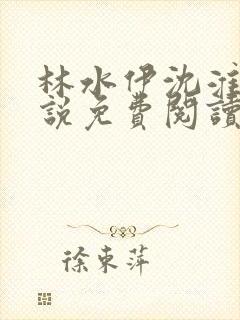 林水伊沈淮
說免費閱讀
徐東萍